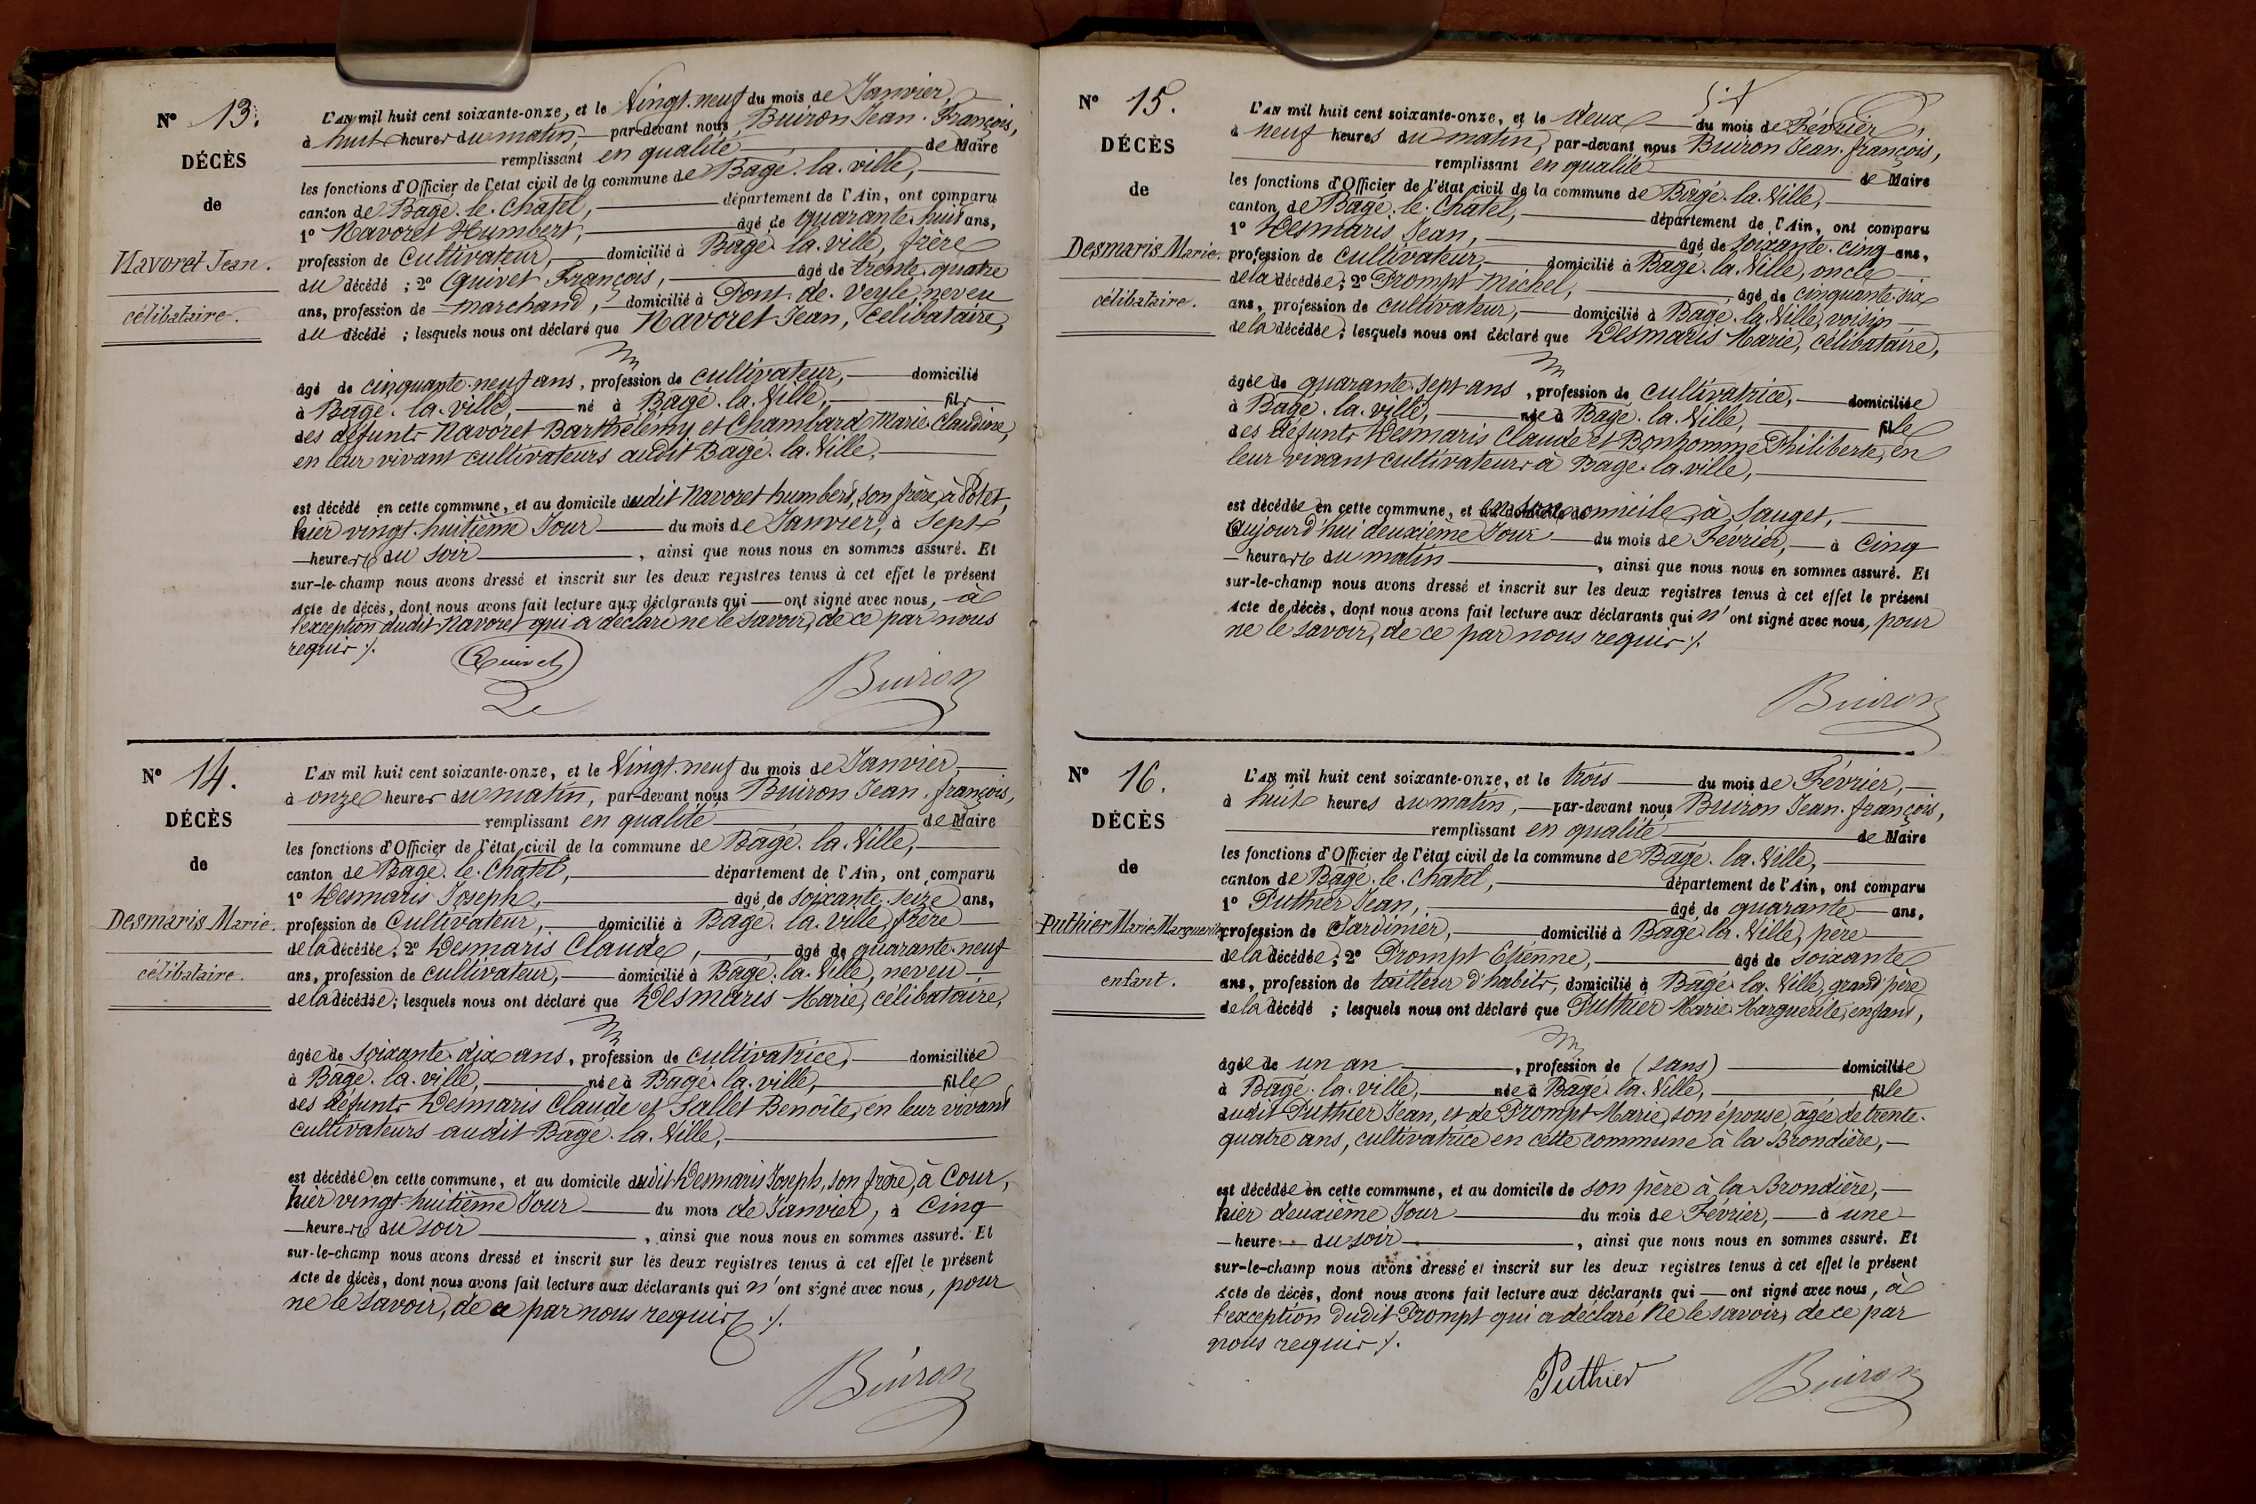 N° 13.
DÉCÈS
de
Navoret Jean.
célibataire.
L'AN mil huit cent soixante-onze, et le Vingt-neuf du mois de Janvier,
à huit heures du matin, par-devant nous Buiron Jean-François,
remplissant en qualité de Maire
les fonctions d'Officier de l'état civil de la commune de Bagé-la-ville,
canton de Bagé-le-Chatel, département de l'Ain, ont comparu
1° Navoret Humbert, âgé de quarante-huit ans,
profession de cultivateur, domicilié à Bagé-la-ville, frère
du décédé ; 2° Quivet François, âgé de trente-quatre
ans, profession de marchand, domicilié à Pont-de-Veyle, neveu
du décédé ; lesquels nous ont déclaré que Navoret Jean, célibataire,
âgé de cinquante-neuf ans, profession de cultivateur, domicilié
à Bagé-la-ville, né à Bagé-la-Ville, fils
des défunts Navoret Barthélémy et Chambard Marie-Claudine,
en leur vivant cultivateurs audit Bagé-la-Ville,
est décédé en cette commune, et au domicile dudit Navoret humbert, son frère, à Potet,
hier vingt-huitième Jour du mois de Janvier, à Sept
heures du soir, ainsi que nous nous en sommes assuré. Et
sur-le-champ nous avons dressé et inscrit sur les deux registres tenus à cet effet le présent
Acte de décès, dont nous avons fait lecture aux déclarants qui ont signé avec nous, à
l'exception dudit Navoret qui a déclaré ne le savoir, de ce par nous
requis ./.
Quivet
Buiron
N° 14.
DÉCÈS
de
Desmaris Marie.
célibataire.
L'AN mil huit cent soixante-onze, et le Vingt-neuf du mois de Janvier,
à onze heures du matin, par-devant nous Buiron Jean-françois,
remplissant en qualité de Maire
les fonctions d'Officier de l'état civil de la commune de Bagé-la-Ville,
canton de Bagé-le-Chatel, département de l'Ain, ont comparu
1° Desmaris Joseph, âgé de soixante-seize ans,
profession de Cultivateur, domicilié à Bagé-la-ville, frère
de la décédée, 2° Desmaris Claude, âgé de quarante-neuf
ans, profession de cultivateur, domicilié à Bagé-la-Ville, neveu
de la décédée ; lesquels nous ont déclaré que Desmaris Marie, célibataire,
âgée de soixante-dix ans, profession de cultivatrice, domiciliée
à Bagé-la-ville, née à Bagé-la-ville, fille
des défunts Desmaris Claude et Sallet Benoîte, en leur vivant
cultivateurs audit Bagé-la-Ville,
est décédée en cette commune, et au domicile dudit Desmaris Joseph, son frère, à Cour,
hier vingt-huitième Jour du mois de Janvier, à Cinq
heures du soir, ainsi que nous nous en sommes assuré. Et
sur-le-champ nous avons dressé et inscrit sur les deux registres tenus à cet effet le présent
Acte de décès, dont nous avons fait lecture aux déclarants qui n'ont signé avec nous, pour
ne le savoir, de ce par nous requis ./.
Buiron
N° 15.
DÉCÈS
de
Desmaris Marie.
célibataire.
L'AN mil huit cent soixante-onze, et le deux du mois de Février,
à neuf heures du matin, par-devant nous Buiron Jean-françois,
remplissant en qualité de Maire
les fonctions d'Officier de l'état civil de la commune de Bagé-la-Ville,
canton de Bagé-le-Chatel, département de l'Ain, ont comparu
1° Desmaris Jean, âgé de soixante-cinq ans,
profession de cultivateur, domicilié à Bagé-la-Ville, oncle
de la décédée ; 2° Prompt Michel, âgé de cinquante-six
ans, profession de cultivateur, domicilié à Bagé-la-Ville, voisin
de la décédée ; lesquels nous ont déclaré que Desmaris Marie, célibataire,
âgée de quarante-sept ans, profession de cultivatrice, domiciliée
à Bagé-la-ville, née à Bagé-la-Ville, fille
des défunts Desmaris Claude et Bonhomme Philiberte, en
leur vivant cultivateurs à Bagé-la-ville,
est décédée en cette commune, et en son domicile, à Sauget,
aujourd'hui deuxième Jour du mois de Février, à Cinq
heures du matin, ainsi que nous nous en sommes assuré. Et
sur-le-champ nous avons dressé et inscrit sur les deux registres tenus à cet effet le présent
Acte de décès, dont nous avons fait lecture aux déclarants qui n'ont signé avec nous, pour
ne le savoir, de ce par nous requis ./.
Buiron
N° 16.
DÉCÈS
de
Puthier Marie-Marguerite
enfant.
L'AN mil huit cent soixante-onze, et le trois du mois de Février,
à huit heures du matin, par-devant nous Buiron Jean-françois,
remplissant en qualité de Maire
les fonctions d'Officier de l'état civil de la commune de Bagé-la-Ville,
canton de Bagé-le-Chatel, département de l'Ain, ont comparu
1° Puthier Jean, âgé de quarante ans,
profession de Jardinier, domicilié à Bagé-la-Ville, père
de la décédée ; 2° Prompt Etienne, âgé de soixante
ans, profession de tailleur d'habits, domicilié à Bagé-la-Ville, grand'père
de la décédé ; lesquels nous ont déclaré que Puthier Marie-Marguerite, enfant,
âgée de un an, profession de (sans) domiciliée
à Bagé-la-ville, née à Bagé-la-Ville, fille
dudit Puthier Jean, et de Prompt Marie, son épouse, âgée de trente-
quatre ans, cultivatrice en cette commune à la Brondière,
est décédée en cette commune, et au domicile de son père à la Brondière,
hier deuxième Jour du mois de Février, à une
heure du soir, ainsi que nous nous en sommes assuré. Et
sur-le-champ nous avons dressé et inscrit sur les deux registres tenus à cet effet le présent
Acte de décès, dont nous avons fait lecture aux déclarants qui ont signé avec nous, à
l'exception dudit Prompt qui a déclaré ne le savoir, de ce par
nous requis ./.
Puthier
Buiron